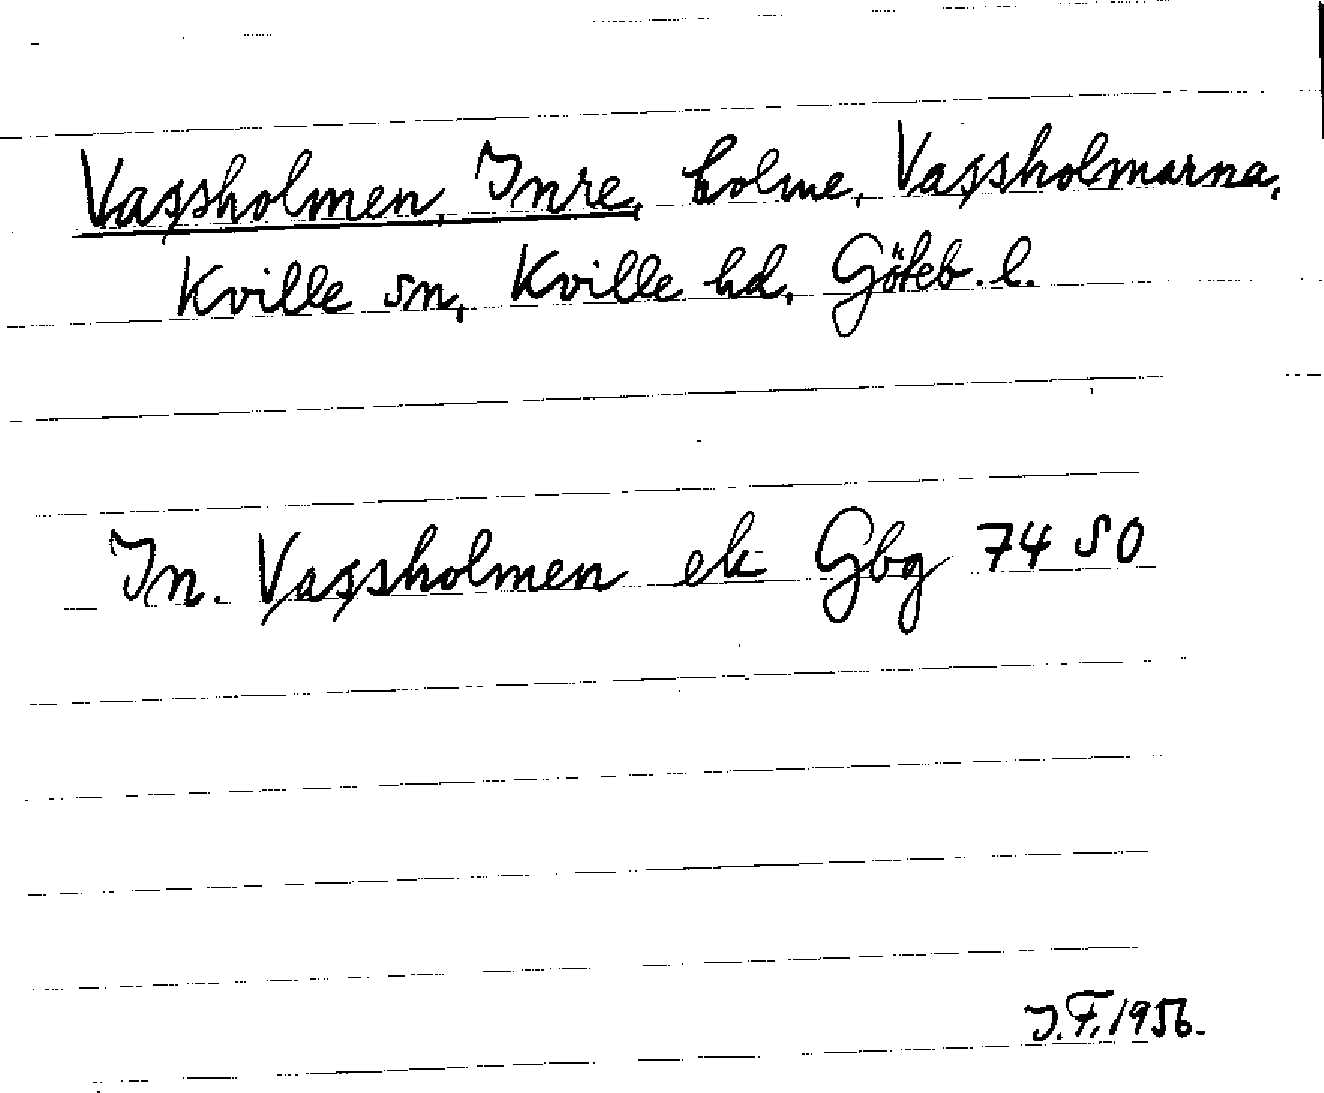 Vassholmen, Inre, holme, Vassholmarna,
Kville sn, Kville hd, Göteb. l.
In. Vassholmen ek Gbg 74 SO
J.F. 1956.